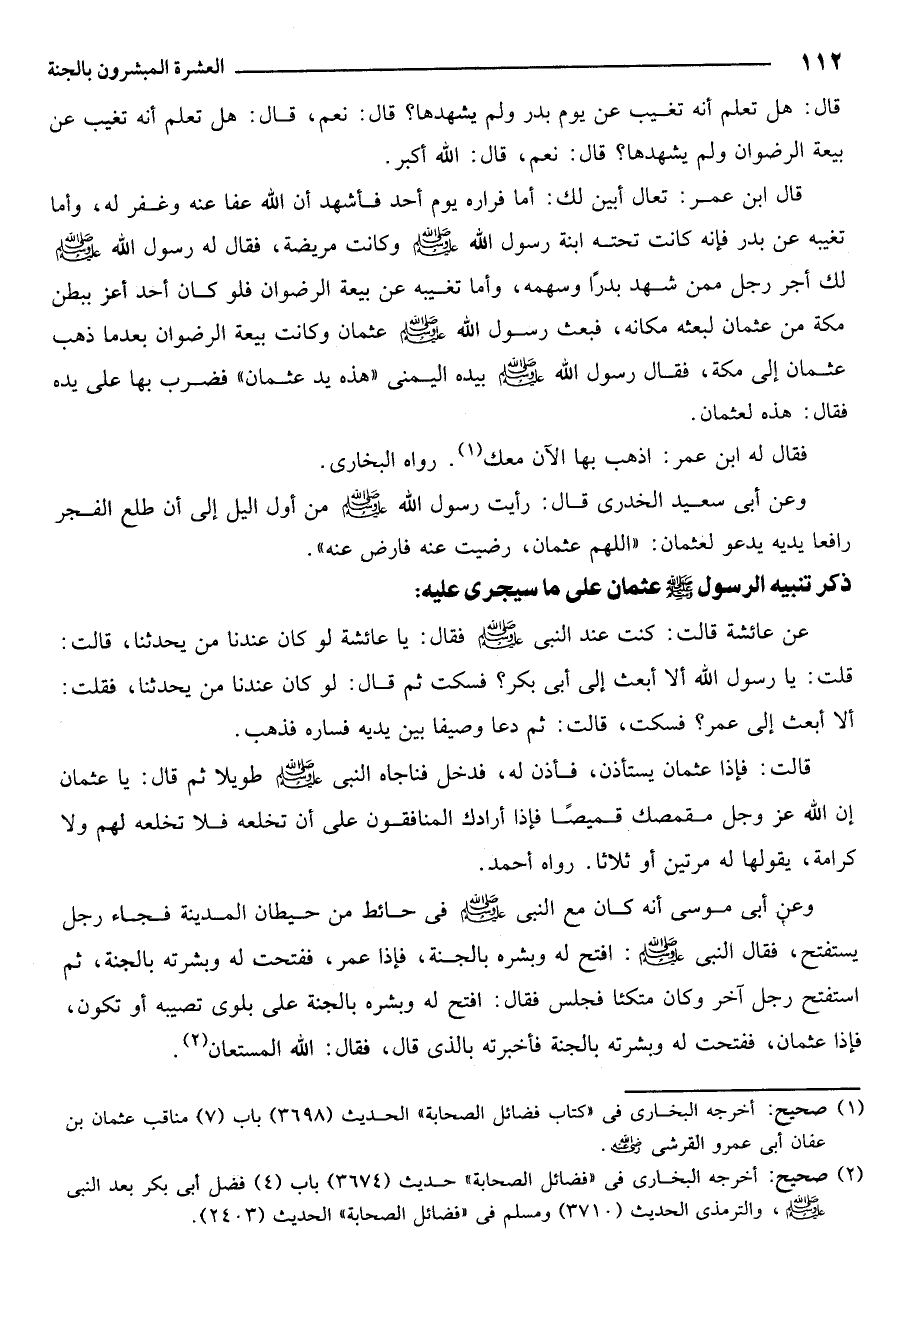 ١١٢ العشرة المبشرون بالجنة
قال: هل تعلم أنه تغيب عن يوم بدر ولم يشهدها؟ قال: نعم، قال: هل تعلم أنه تغيب عن
بيعة الرضوان ولم يشهدها؟ قال: نعم، قال: الله أكبر.
قال ابن عمر: تعال أبين لك: أما فراره يوم أحد فأشهد أن الله عفا عنه وغفر له، وأما
تغيبه عن بدر فإنه كانت تحته ابنة رسول الله ﷺ وكانت مريضة، فقال له رسول الله ﷺ
لك أجر رجل ممن شهد بدرًا وسهمه، وأما تغيبه عن بيعة الرضوان فلو كان أحد أعز ببطن
مكة من عثمان لبعثه مكانه، فبعث رسول الله ﷺ عثمان وكانت بيعة الرضوان بعدما ذهب
عثمان إلى مكة، فقال رسول الله ﷺ بيده اليمنى «هذه يد عثمان» فضرب بها على يده
فقال: هذه لعثمان.
فقال له ابن عمر: اذهب بها الآن معك(١). رواه البخارى.
وعن أبى سعيد الخدرى قال: رأيت رسول الله ﷺ من أول اليل إلى أن طلع الفجر
رافعا يديه يدعو لعثمان: «اللهم عثمان، رضيت عنه فارض عنه».
ذكر تنبيه الرسول ﷺ عثمان على ما سيجرى عليه:
عن عائشة قالت: كنت عند النبى ﷺ فقال: يا عائشة لو كان عندنا من يحدثنا، قالت:
قلت: يا رسول الله ألا أبعث إلى أبى بكر؟ فسكت ثم قال: لو كان عندنا من يحدثنا، فقلت:
ألا أبعث إلى عمر؟ فسكت، قالت: ثم دعا وصيفا بين يديه فساره فذهب.
قالت: فإذا عثمان يستأذن، فأذن له، فدخل فناجاه النبى ﷺ طويلا ثم قال: يا عثمان
إن الله عز وجل مقمصك قميصًا فإذا أرادك المنافقون على أن تخلعه فلا تخلعه لهم ولا
كرامة، يقولها له مرتين أو ثلاثا. رواه أحمد.
وعن أبى موسى أنه كان مع النبى ﷺ فى حائط من حيطان المدينة فجاء رجل
يستفتح، فقال النبى ﷺ: افتح له وبشره بالجنة، فإذا عمر، ففتحت له وبشرته بالجنة، ثم
استفتح رجل آخر وكان متكئا فجلس فقال: افتح له وبشره بالجنة على بلوى تصيبه أو تكون،
فإذا عثمان، ففتحت له وبشرته بالجنة فأخبرته بالذى قال، فقال: الله المستعان(٢).
(١) صحيح: أخرجه البخارى فى «كتاب فضائل الصحابة» الحديث (٣٦٩٨) باب (٧) مناقب عثمان بن
عفان أبى عمرو القرشى رضي الله عنه.
(٢) صحيح: أخرجه البخارى فى «فضائل الصحابة» حديث (٣٦٧٤) باب (٤) فضل أبى بكر بعد النبى
ﷺ، والترمذى الحديث (٣٧١٠) ومسلم فى «فضائل الصحابة» الحديث (٢٤٠٣).